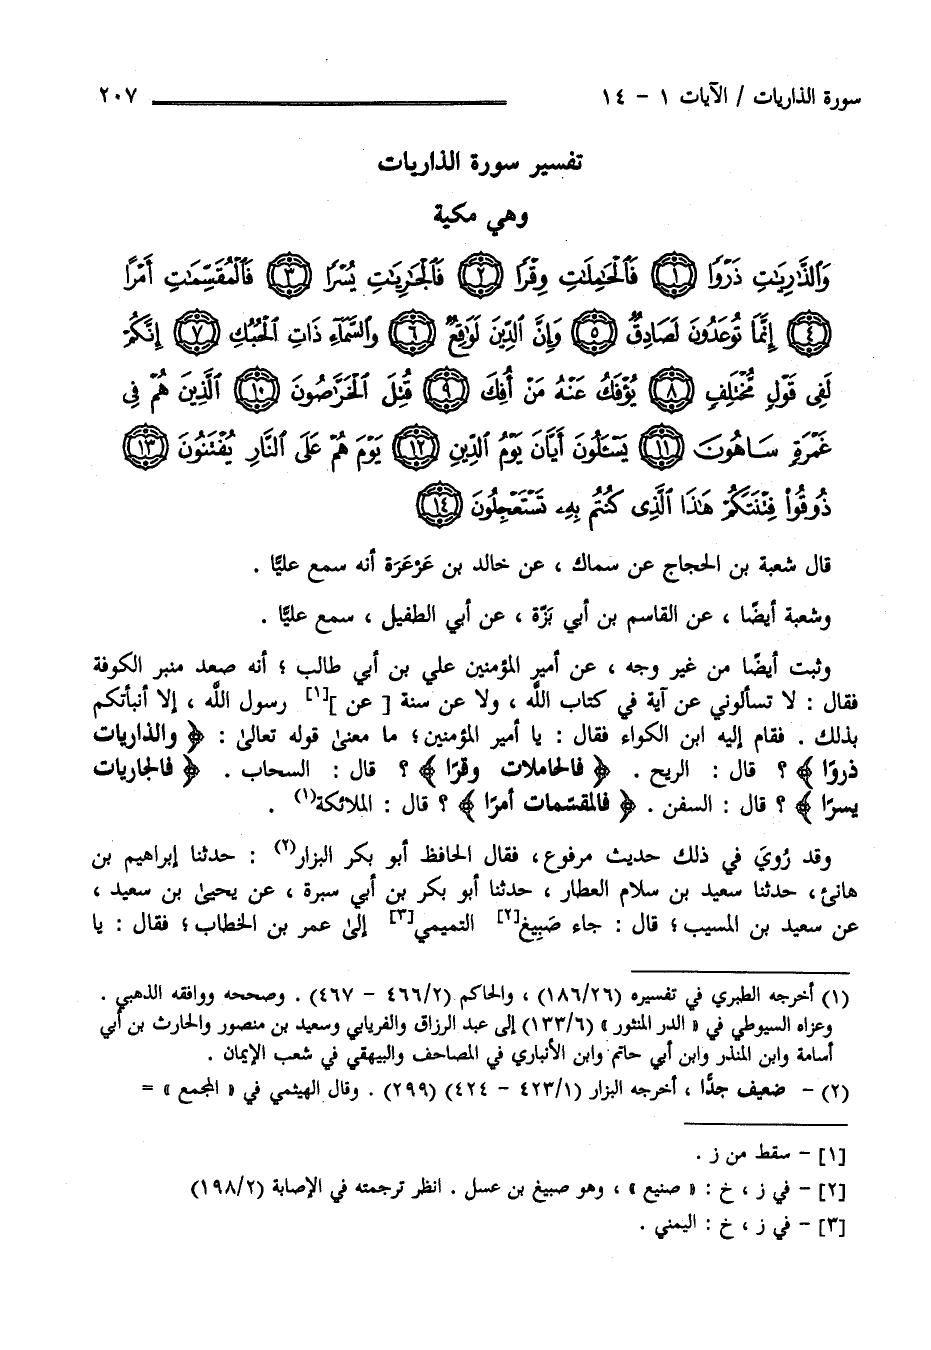 سورة الذاريات / الآيات ١ - ١٤ ٢٠٧
تفسير سورة الذاريات
وهي مكية
وَالذَّارِيَاتِ ذَرْوًا ١ فَالْحَامِلَاتِ وِقْرًا ٢ فَالْجَارِيَاتِ يُسْرًا ٣ فَالْمُقَسِّمَاتِ أَمْرًا
٤ إِنَّمَا تُوعَدُونَ لَصَادِقٌ ٥ وَإِنَّ الدِّينَ لَوَاقِعٌ ٦ وَالسَّمَاءِ ذَاتِ الْحُبُكِ ٧ إِنَّكُمْ
لَفِي قَوْلٍ مُّخْتَلِفٍ ٨ يُؤْفَكُ عَنْهُ مَنْ أُفِكَ ٩ قُتِلَ الْخَرَّاصُونَ ١٠ الَّذِينَ هُمْ فِي
غَمْرَةٍ سَاهُونَ ١١ يَسْـَٔلُونَ أَيَّانَ يَوْمُ الدِّينِ ١٢ يَوْمَ هُمْ عَلَى النَّارِ يُفْتَنُونَ ١٣
ذُوقُوا فِتْنَتَكُمْ هَٰذَا الَّذِي كُنتُم بِهِ تَسْتَعْجِلُونَ ١٤
قال شعبة بن الحجاج عن سماك ، عن خالد بن عَرْعَرَة أنه سمع عليًّا .
وشعبة أيضًا ، عن القاسم بن أبي بَزّة ، عن أبي الطفيل ، سمع عليًّا .
وثبت أيضًا من غير وجه ، عن أمير المؤمنين علي بن أبي طالب ؛ أنه صعد منبر الكوفة
فقال : لا تسألوني عن آية في كتاب اللَّه ، ولا عن سنة [ عن ][١] رسول اللَّه ، إلا أنبأتكم
بذلك . فقام إليه ابن الكواء فقال : يا أمير المؤمنين؛ ما معنىٰ قوله تعالىٰ : ﴿ والذاريات
ذروًا ﴾ ؟ قال : الريح . ﴿ فالحاملات وقرًا ﴾ ؟ قال : السحاب . ﴿ فالجاريات
يسرًا ﴾ ؟ قال : السفن . ﴿ فالمقسّمات أمرًا ﴾ ؟ قال : الملائكة(١) .
وقد رُويَ في ذلك حديث مرفوع، فقال الحافظ أبو بكر البزار(٢) : حدثنا إبراهيم بن
هانئ، حدثنا سعيد بن سلام العطار ، حدثنا أبو بكر بن أبي سبرة ، عن يحيىٰ بن سعيد ،
عن سعيد بن المسيب؛ قال : جاء صَبِيغ[٢] التميمي[٣] إلىٰ عمر بن الخطاب؛ فقال : يا
(١) أخرجه الطبري في تفسيره (١٨٦/٢٦) ، والحاكم (٤٦٦/٢ - ٤٦٧) . وصححه ووافقه الذهبي .
وعزاه السيوطي في « الدر المنثور » (١٣٣/٦) إلى عبد الرزاق والفريابي وسعيد بن منصور والحارث بن أبي
أسامة وابن المنذر وابن أبي حاتم وابن الأنباري في المصاحف والبيهقي في شعب الإيمان .
(٢) - ضعيف جدًّا ، أخرجه البزار (٤٢٣/١ - ٤٢٤) (٢٩٩) . وقال الهيثمي في « المجمع » =
[١] - سقط من ز .
[٢] - في ز ، خ : « صنيع » ، وهو صبيغ بن عسل . انظر ترجمته في الإصابة (١٩٨/٢)
[٣] - في ز ، خ : اليمني .